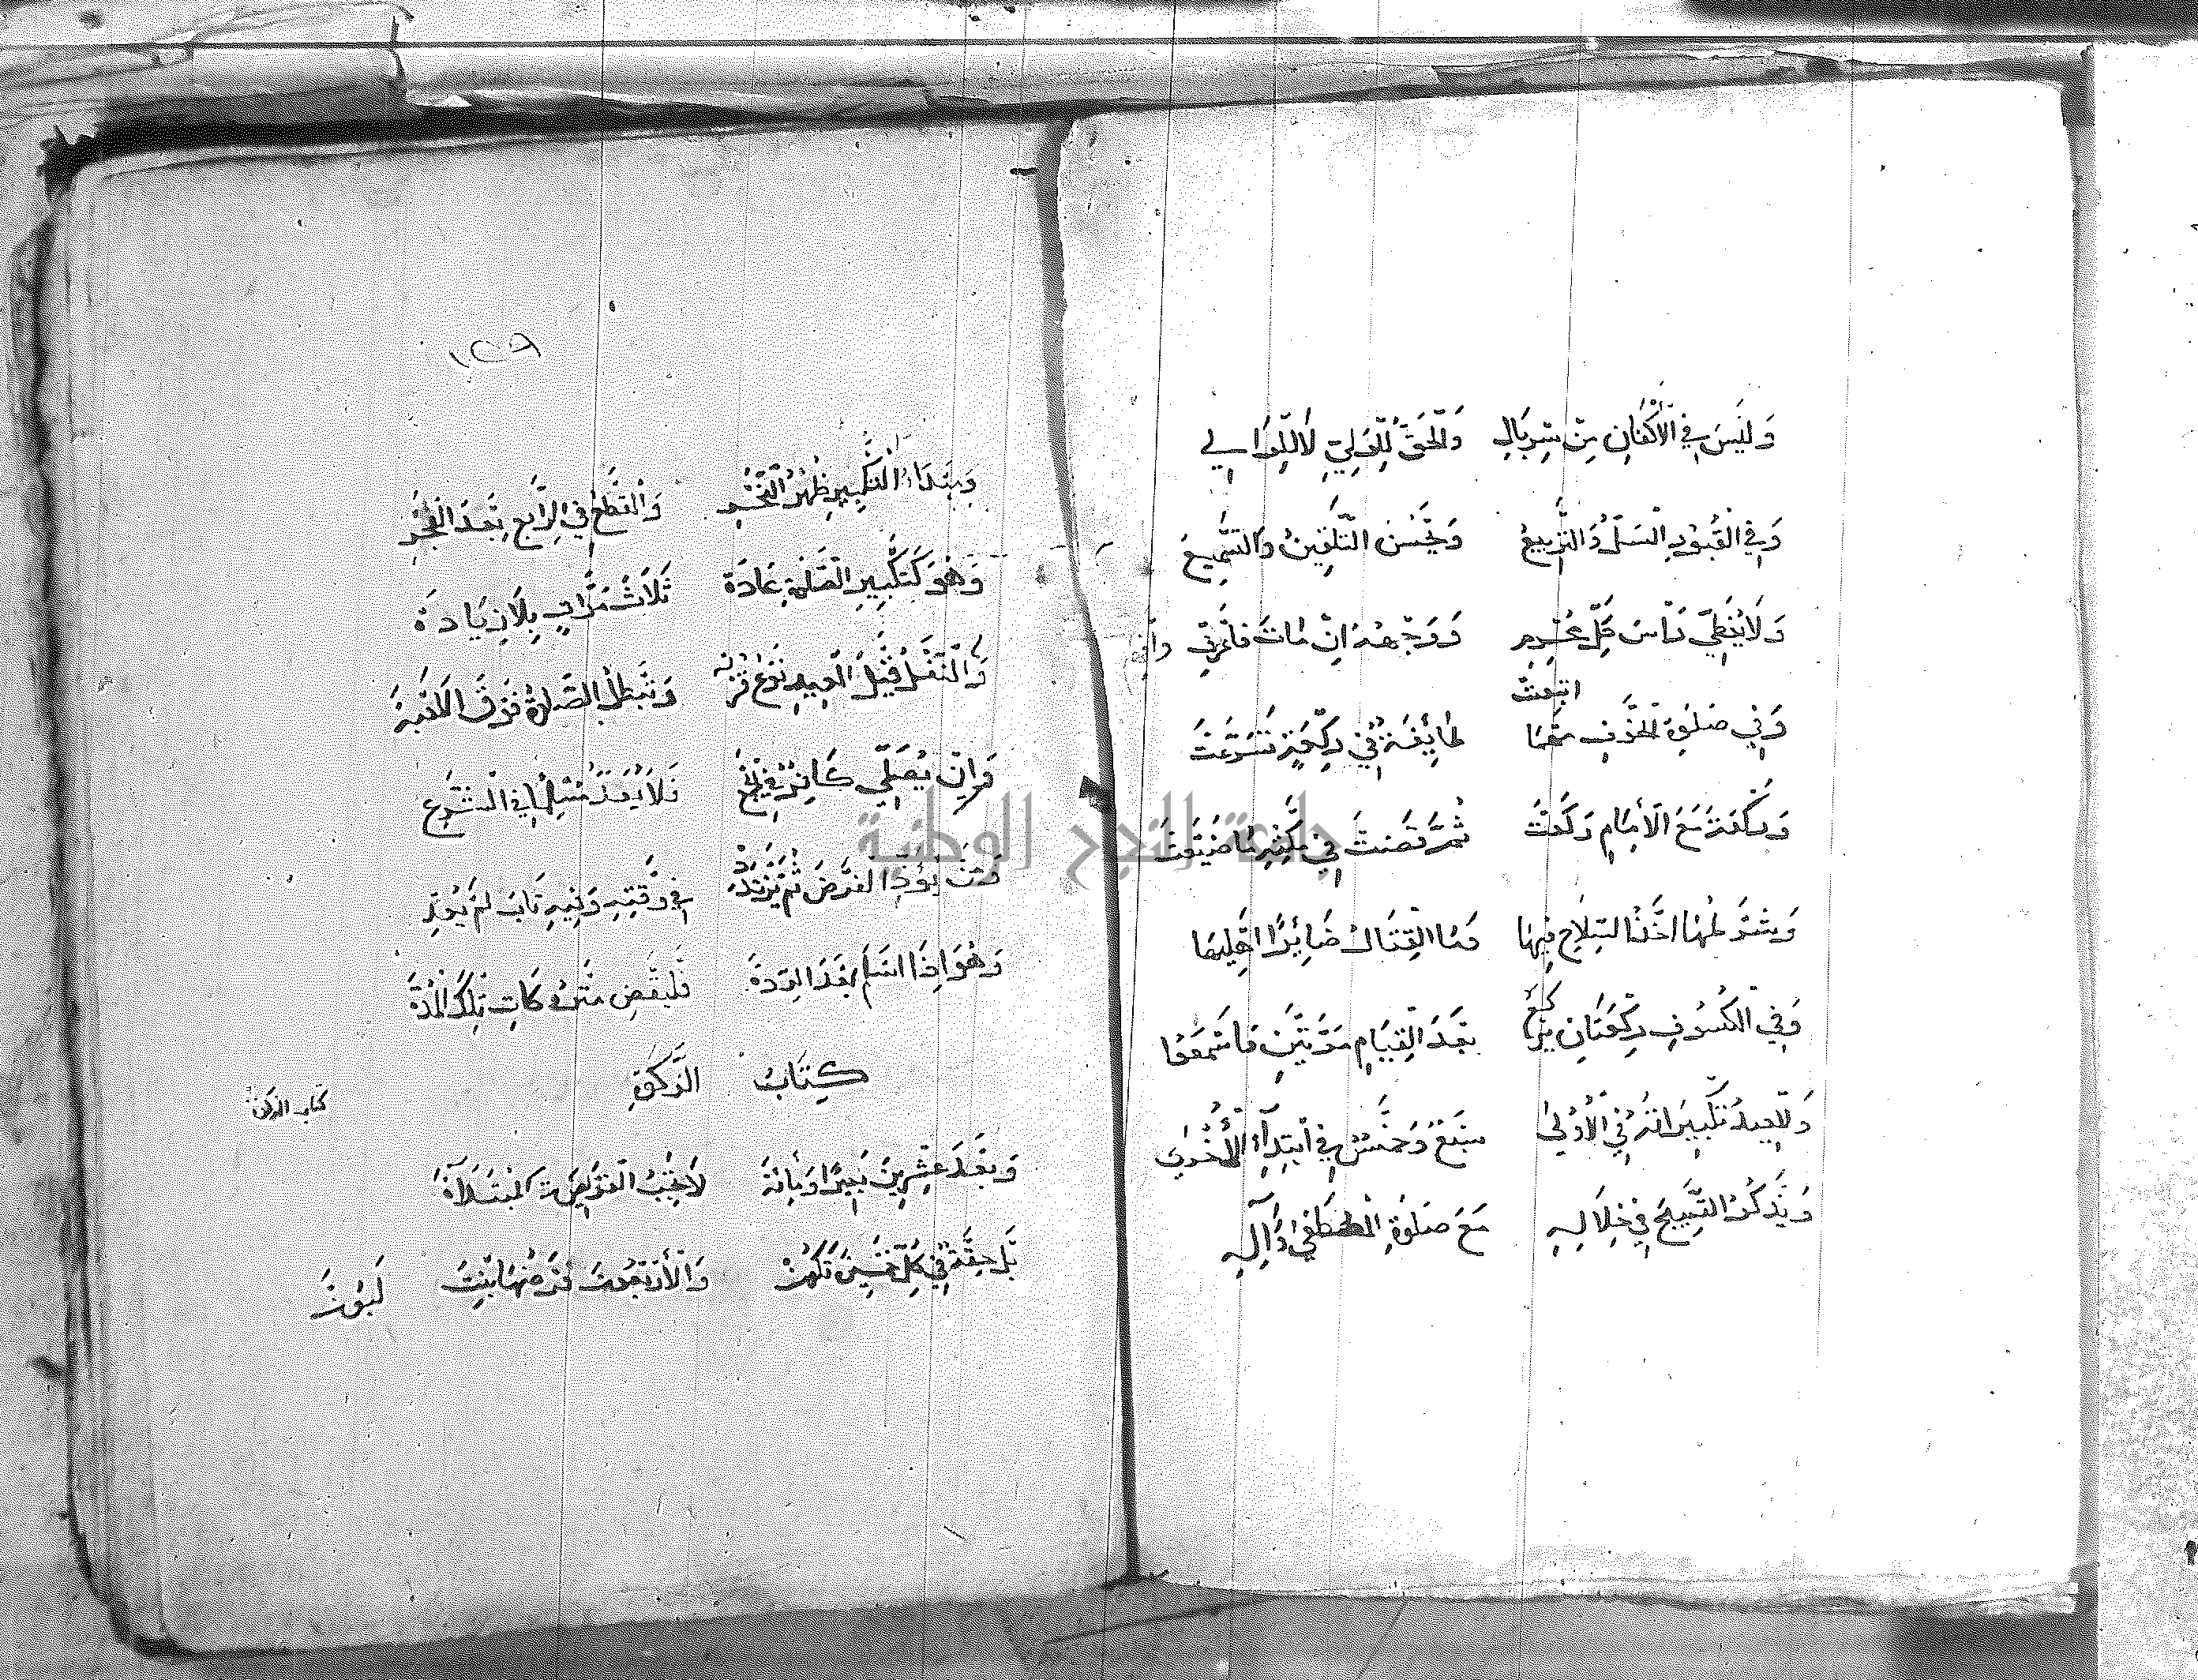 وَلَيْسَ فِي الْأَكْفَانِ مِنْ سِرْبَالِ وَالْحَقُّ لِلْوَلِيِّ لَا لِلْوَالِي
وَفِي الْقُبُورِ السَّلُّ وَالتَّرْبِيعُ وَيَحْسُنُ التَّلْقِينُ وَالتَّسْمِيعُ
وَلَا يُغَطَّى رَأْسُ كُلِّ مُحْرِمِ وَوَجْهُهُ إِنْ مَاتَ
وَفِي صَلٰوةِ الْخَوْفِ مَعْهَا اتبعت طَائِفَةٌ فِي رَكْعَةٍ تَسَرَّعَتْ
وَرَكْعَةً مَعَ الْأَمَامِ رَكَعَتْ ثُمَّ قَضَتْ فِي مَا ضَيَّعَتْ
وَيُشْتَرَ لَهَا أَخْذُ السِّلَاحِ فِيهَا وَمَا الْقِتَالُ ضَائِرًا
وَفِي الْكُسُوفِ رَكْعَتَانِ يركع بَعْدَ الْقِيَامِ مَرَّتَيْنِ فَاسْمَعُوا
وَلِلْعِيدِ تَكْبِيرَاتُهُ فِي الْأُولٰى سَبْعٌ وَخَمْسٌ فِي ابْتِدَآءِ الْأُخْرٰى
وَيُذْكَرُ التَّسْبِيحُ فِي خِلَالِهِ مَعَ صَلٰوةِ الْمُصْطَفٰى وَآلِهِ
١٢٩
وَمُبْتَدَاءُ التَّكْبِيرِ ظُهْرُ النَّحْرِ وَالْقَطْعُ فِي الرَّابِعِ بَعْدَ الْفَجْرِ
وَهُوَ كَتَكْبِيرِ الصَّلٰوةِ عَادَة ثَلَاثُ مَرَّاتٍ بِلَا زِيَادَة
وَالنَّفْلُ قَبْلَ الْعِيدِ نَوْعُ قُرْبَه وَتَبْطُلُ الصَّلٰوةُ فَوْقَ الْكَعْبَة
وَإِنْ يُصَلِّي كَافِرٌ فِي جَمْعِ فَلَا يُعَدُّ مُسْلِمًا فِي الشَّرْعِ
مَنْ يُؤَدِّ الْفَرْضَ ثُمَّ يَرْتَدِدْ فِي وَقْتِهِ وَفِيهِ تَابَ لَمْ يُعِدِ
وَهُوَ إِذَا أَسْلَمَ بَعْدَ الرِّدَّة فَلْيَقْضِ مَتْرُوكَاتِ تِلْكَ الْمُدَّة
كِتَابُ الزَّكٰوةِ
كتاب الزكوة
وَبَعْدَ عِشْرِينَ بَعِيرًا وَمِائَة لَا تَجِبُ الْفَرَائِضُ كَمُبْتَدَآة
بَلْ حِقَّةٌ فِي كُلِّ خَمْسِينَ تَكُونُ وَالْأَرْبَعُونَ فَرْضُهَا بِنْتُ لَبُونْ